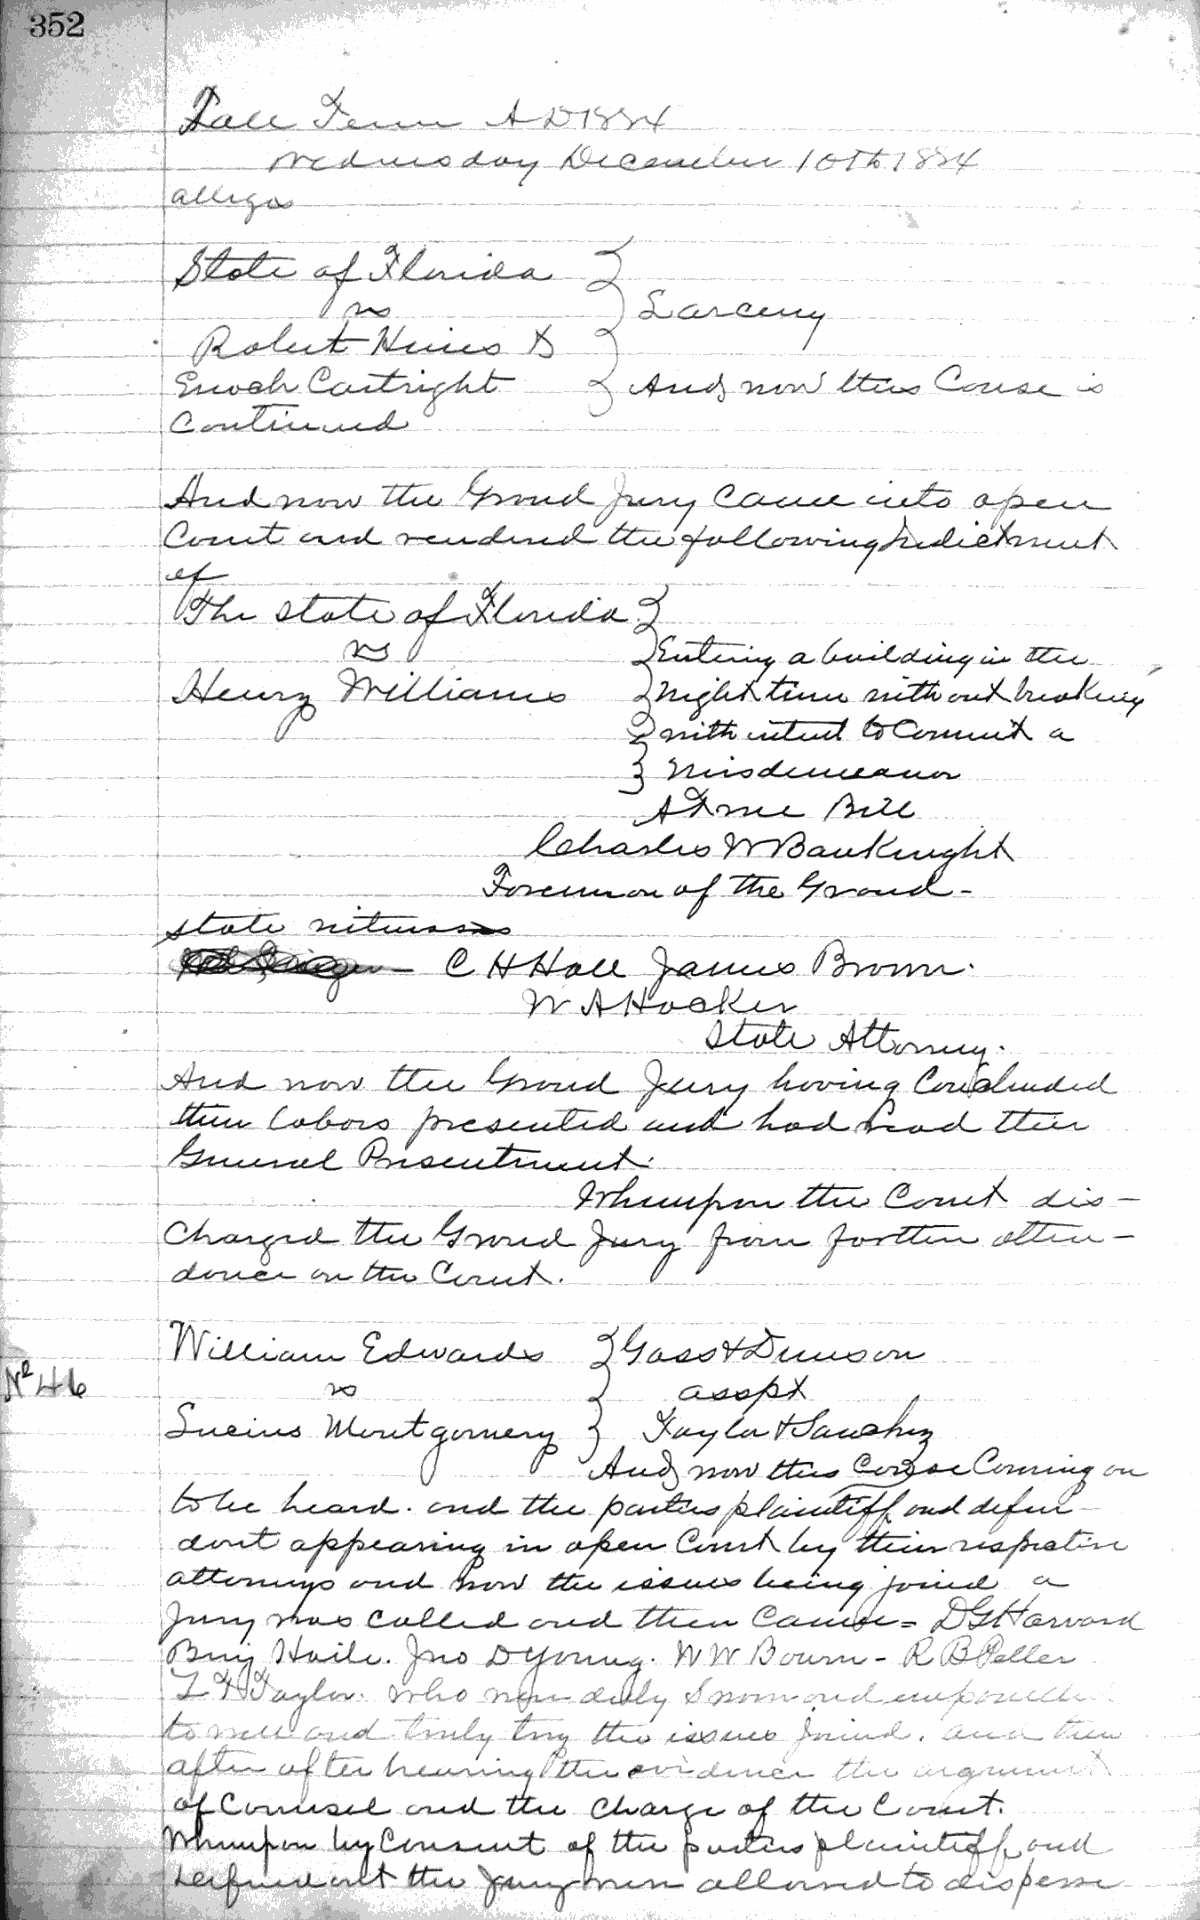 352
Fall Term A D 1884
Wednesday December 10th 1884
allegos
State of Florida
vs
Larceny
Robert Hines &
Enoch Cartright And now this Cause is
Continued
And now the Grand Jury Came into open
Court and rendered the following Indictment
of
The State of Florida
vs
Entering a building in the
Henry Williams night time without breaking
with intent to Commit a
Misdemeanor
A True Bill
Charles W Bauknight
Foreman of the Grand -
State witnesses
C H Hall James Brown.
W A Hocker
State Attorney.
And now the Grand Jury having Concluded
their labors presented and had read their
General Presentment.
Whereupon the Court dis-
charged the Grand Jury from further atten-
dance on the Court.
William Edwards Goss & Dunson
No 46
vs asspt
Lucius Montgomery Taylor & Sanchez
And now this Cause Coming on
to be heard. and the parties plaintiff and defen-
dant appearing in open Court by their respective
attorneys and now the issues being joined a
Jury was Called and then Came = D G Harvard
Benj Haile. Jno D Young. W W Bourn - R B Peller
L F Taylor. who were duly Sworn and empanelled
to well and truly try the issues joined. and then
after after hearing the evidence the argument
of Counsel and the Charge of the Court.
Whereupon by Consent of the parties plaintiff and
defendant the Jury were allowed to disperse